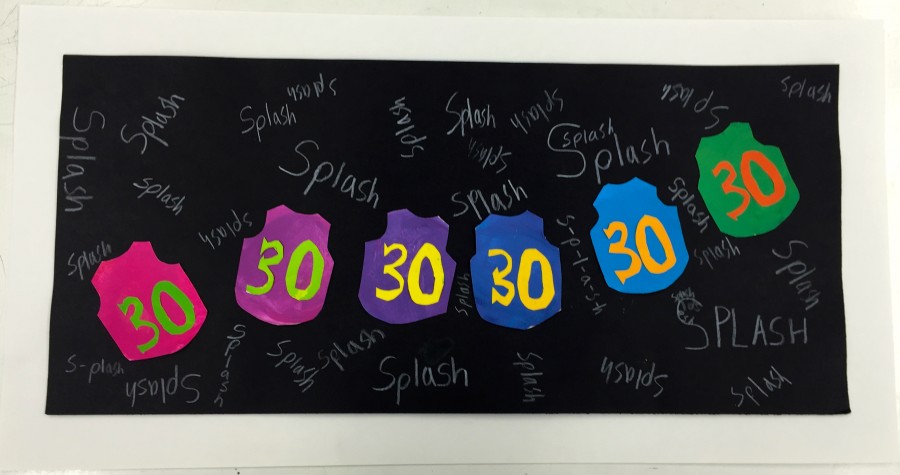 splash
splash
Splash
Splash
Splash
Splash
splash
Splash
splash
splash
splash
Splash
splash
Splash
Splash
splash
splash
splash
Splash
splash
splash
S-p-l-a-sh
splash
Splash
30
30
30
30
30
30
splash
SPLASH
S-plash
Splash
Splash
Splash
Splash
Splash
splash
Splash